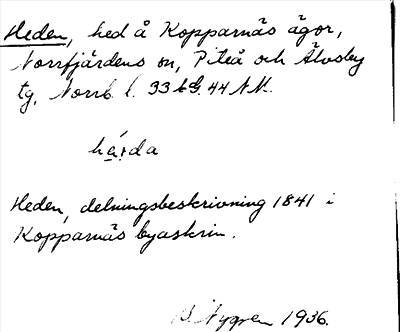 Heden, hed å Kopparnäs ägor,
Norrfjärdens sn, Piteå och Älvsby
tg, Norrb. l. 33 44 NV.
hárda
Heden, delningsbeskrivning 1841 i
Kopparnäs byaskrin.
B. Nygren 1936.